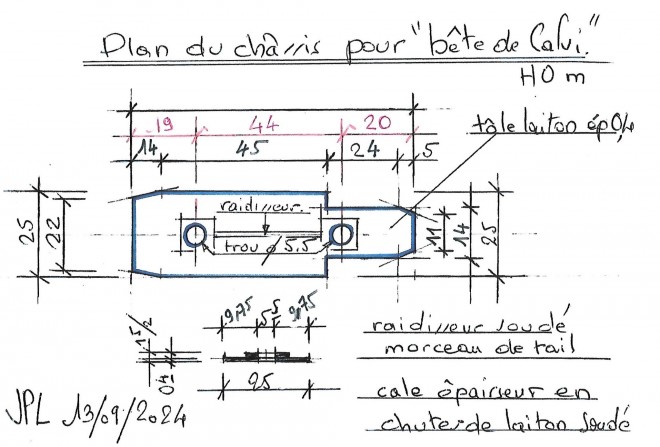 Plan du châssis pour "bête de Calvi."
HO m
19 44 20
tôle laiton ép 0,4
14 45 24 5
raidisseur.
25 22
trou ⌀ 5.5
11 14 25
9,75 5 5 9,75
1 5/2
04
25
raidisseur soudé
morceau de rail
cale épaisseur en
chutes de laiton soudé
JPL 13/09/2024